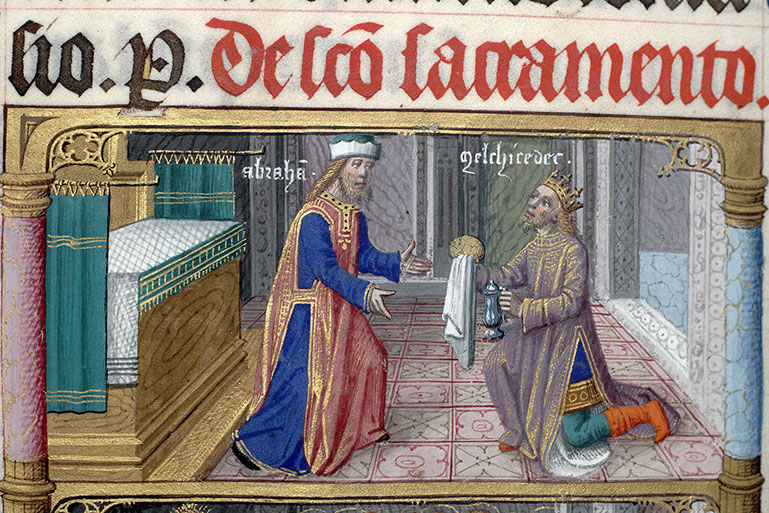 sio. P. De scō sacramento.
abrahā.
melchicedec.